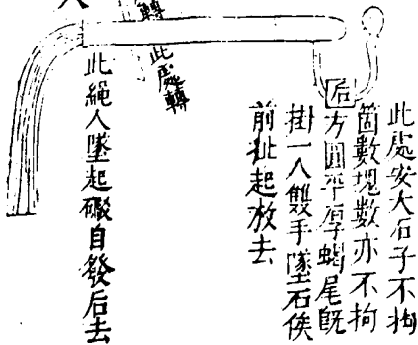 此處安大石子不拘
箇數塊數亦不拘
后
方圓平厚蝎尾既
掛一人雙手墜石俟
前扯起放去
轉此處轉
此繩人墜起礟自發后去